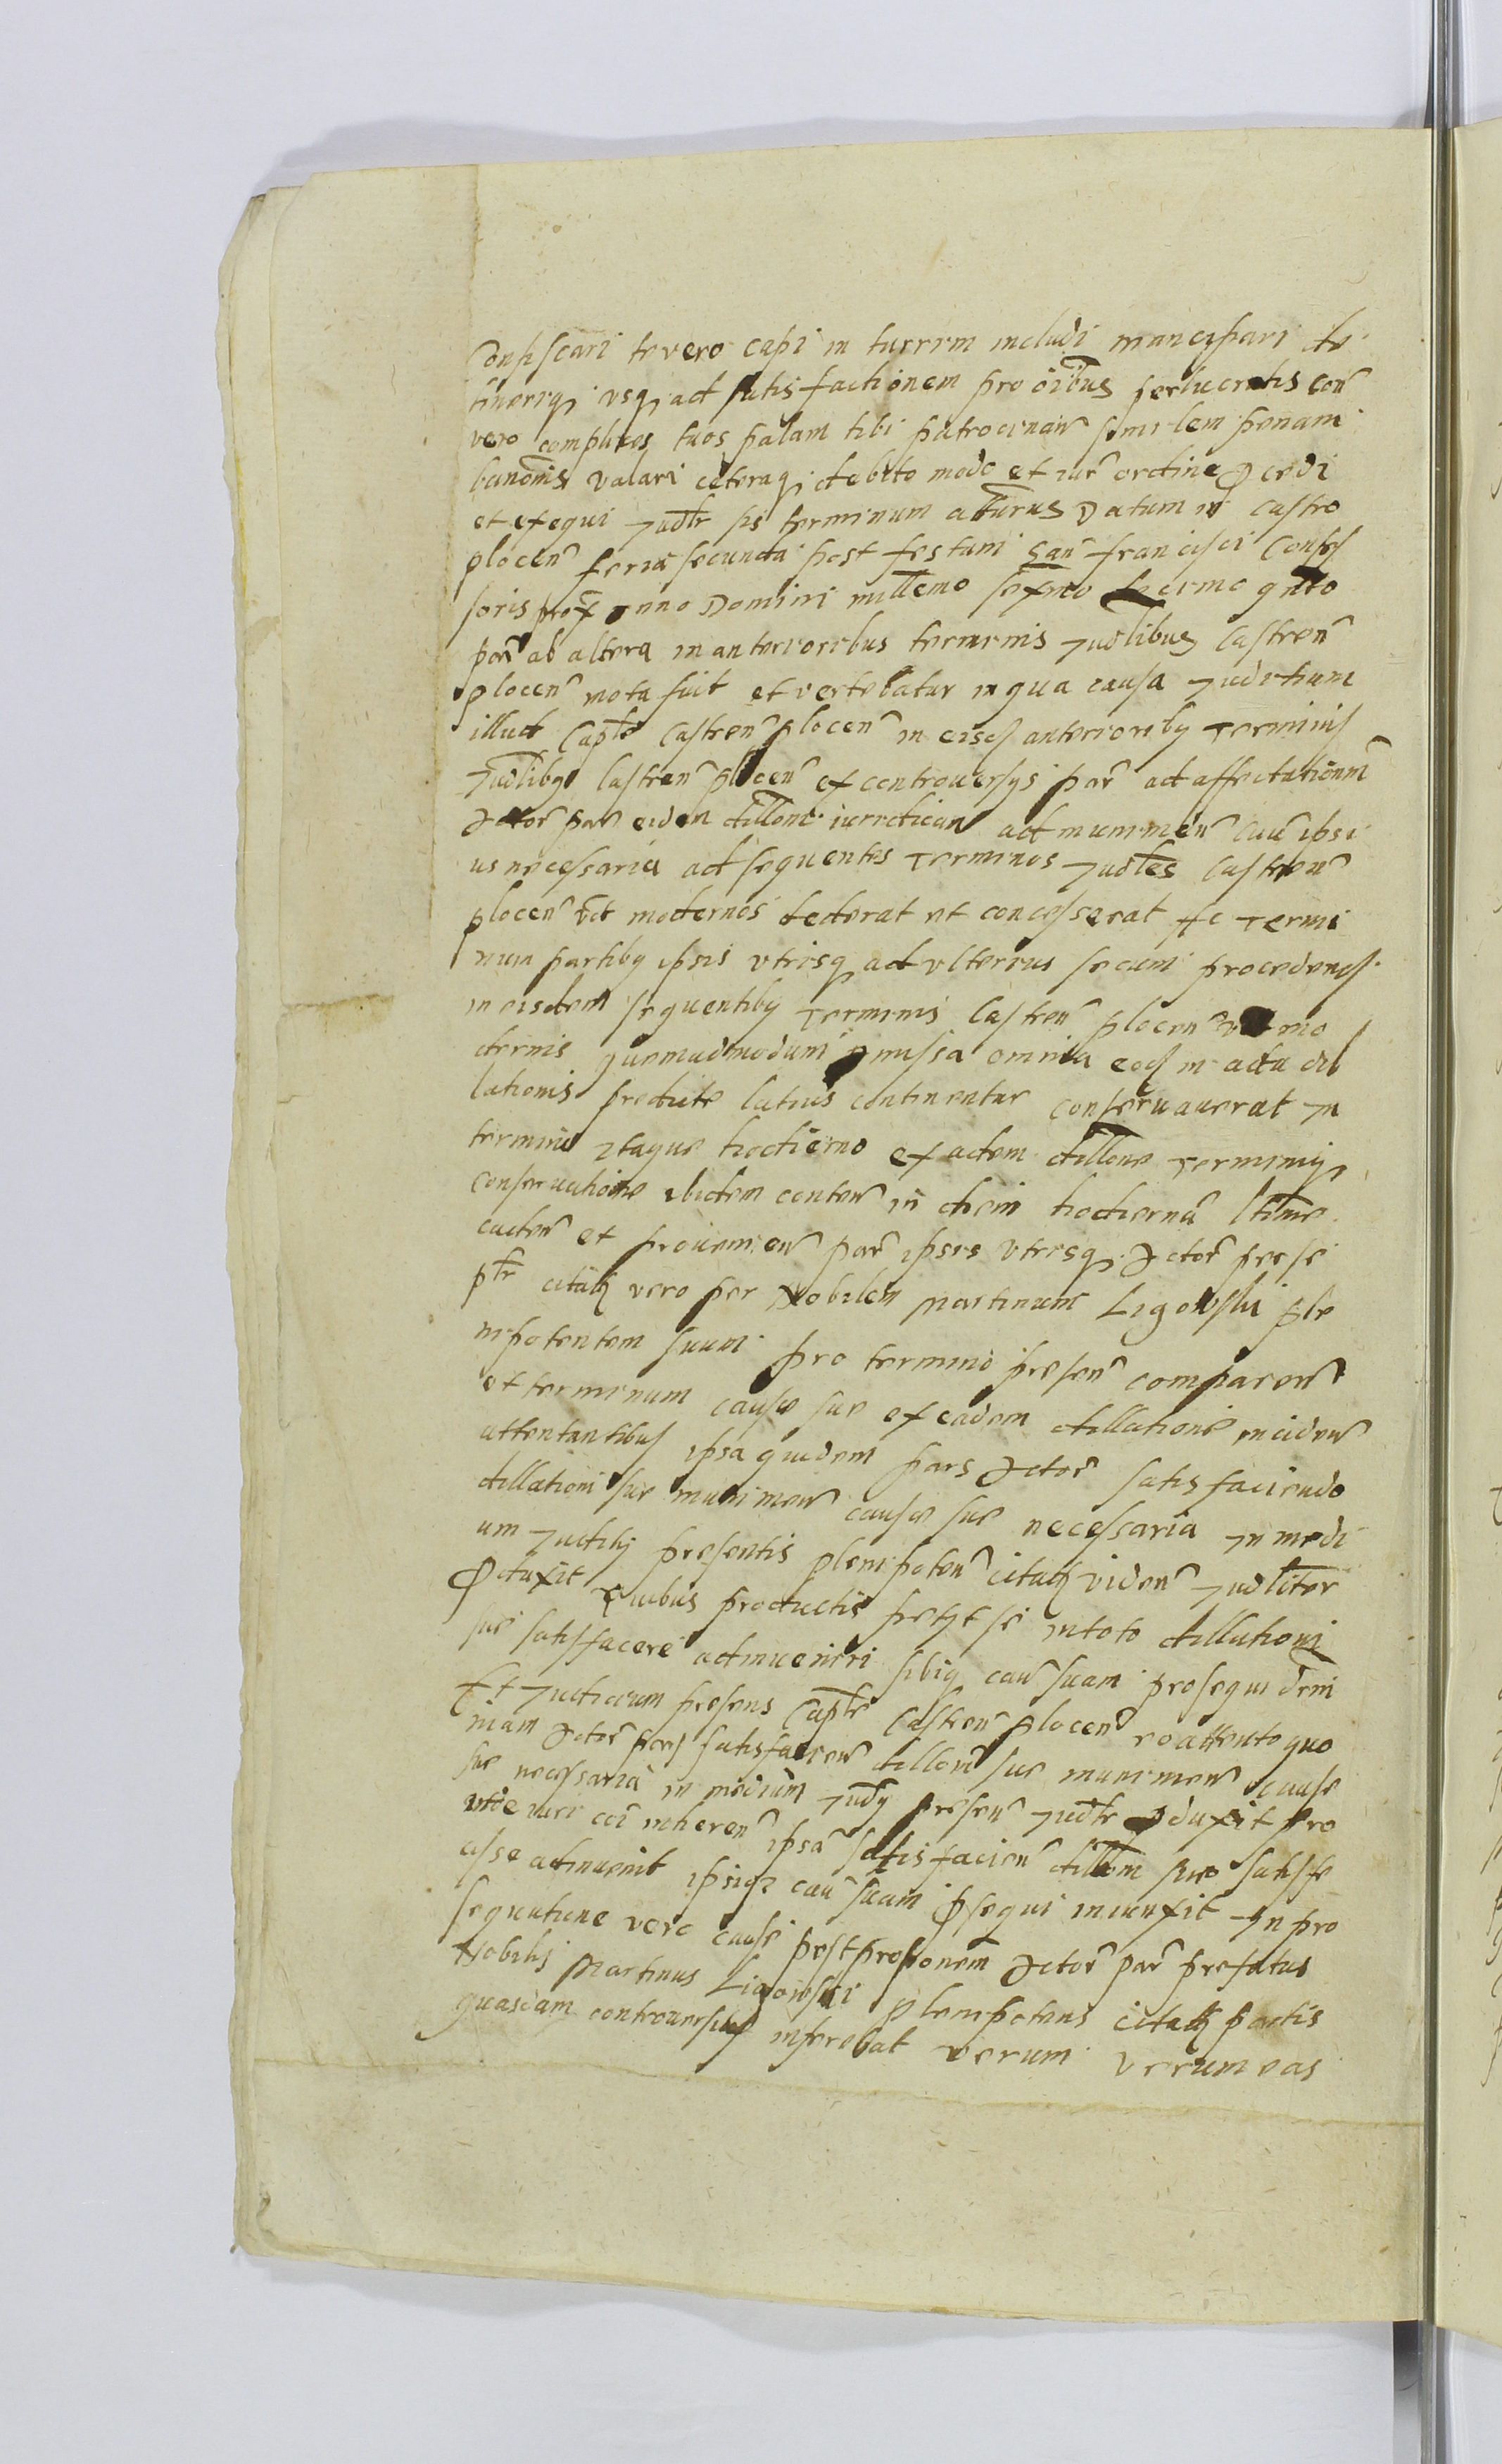 Confiscari te vero capi in turrim includi mancipari de
tineriq; vsq; ad satisfactionem pro oibus perlucratis con
vero complices tuos palam tibi patrocinan similem penam
bannonis valari ceteraq; debito modo et iur ordine pcedi
et exequi Judlr sis terminum attturus Datum in Castro
plocen feria secunda post festum San Francisci Confes
soris prox anno Domini millemo sexmo decimo qnto
par ab altera in anterioribus terminis Judlibus Castren
plocen mota fuit et vertebatur in qua causa Juditium
illud Caple Castren plocen in eisd anterioriby Terminis
Judliby Castren plocen ex controuersys par ad affectationem
Actor par eidem dillone iuridican ad munimen cau ipsi
us necessaria ad sequentes Terminos Judles Castren
plocen vt modernos dederat et concesserat Ac Termi
num partiby ipsis vtrisq ad vlterius secum procedend
in eisdem sequentiby Terminis Castren plocen vt mo
dernis quemadmodum pmissa omnia eod in actu dil
lationis predicte latius continentur conseruauerat In
termino Itaque hodierno ex actem dillone Terminiq
conseruatione ibidem conten in diem hodierna ltime
caden et prouenien par ipsis vtrisq Actor per se
plr citat vero per Nobilem Martinum Ligowski ple
nipotentem suum pro termino presen comparen
et terminum cause sue ex eadem dillatione inciden
attentantibus ipsa quidem pars Actor satisfaciendo
dillationi sue munimen cause sue necessaria In medi
um Judity presentis plenipoten citat viden Judliter
pduxit Quibus productis petyt se in toto dillationi
sue satisfacere adinueniri sibiq cau suam prosequi demi
Et Judicium presens Caple Castren plocen eo attento quo
niam Actor pars satisfacien dilloni sue munimen cause
sue necessaria in medium Judy presen Judlr pduxit pro
inde iuri coi inheren ipsa satisfacien dillom sue satisfe
cisse adinuenit ipsiqe cau suam psequi iniunxit In pro
sequutione vero cause post proponem Actor par prefatus
Nobilis Martinus Ligowski plenipotens citat partis
quasdam controuersias inferebat verum verum eas